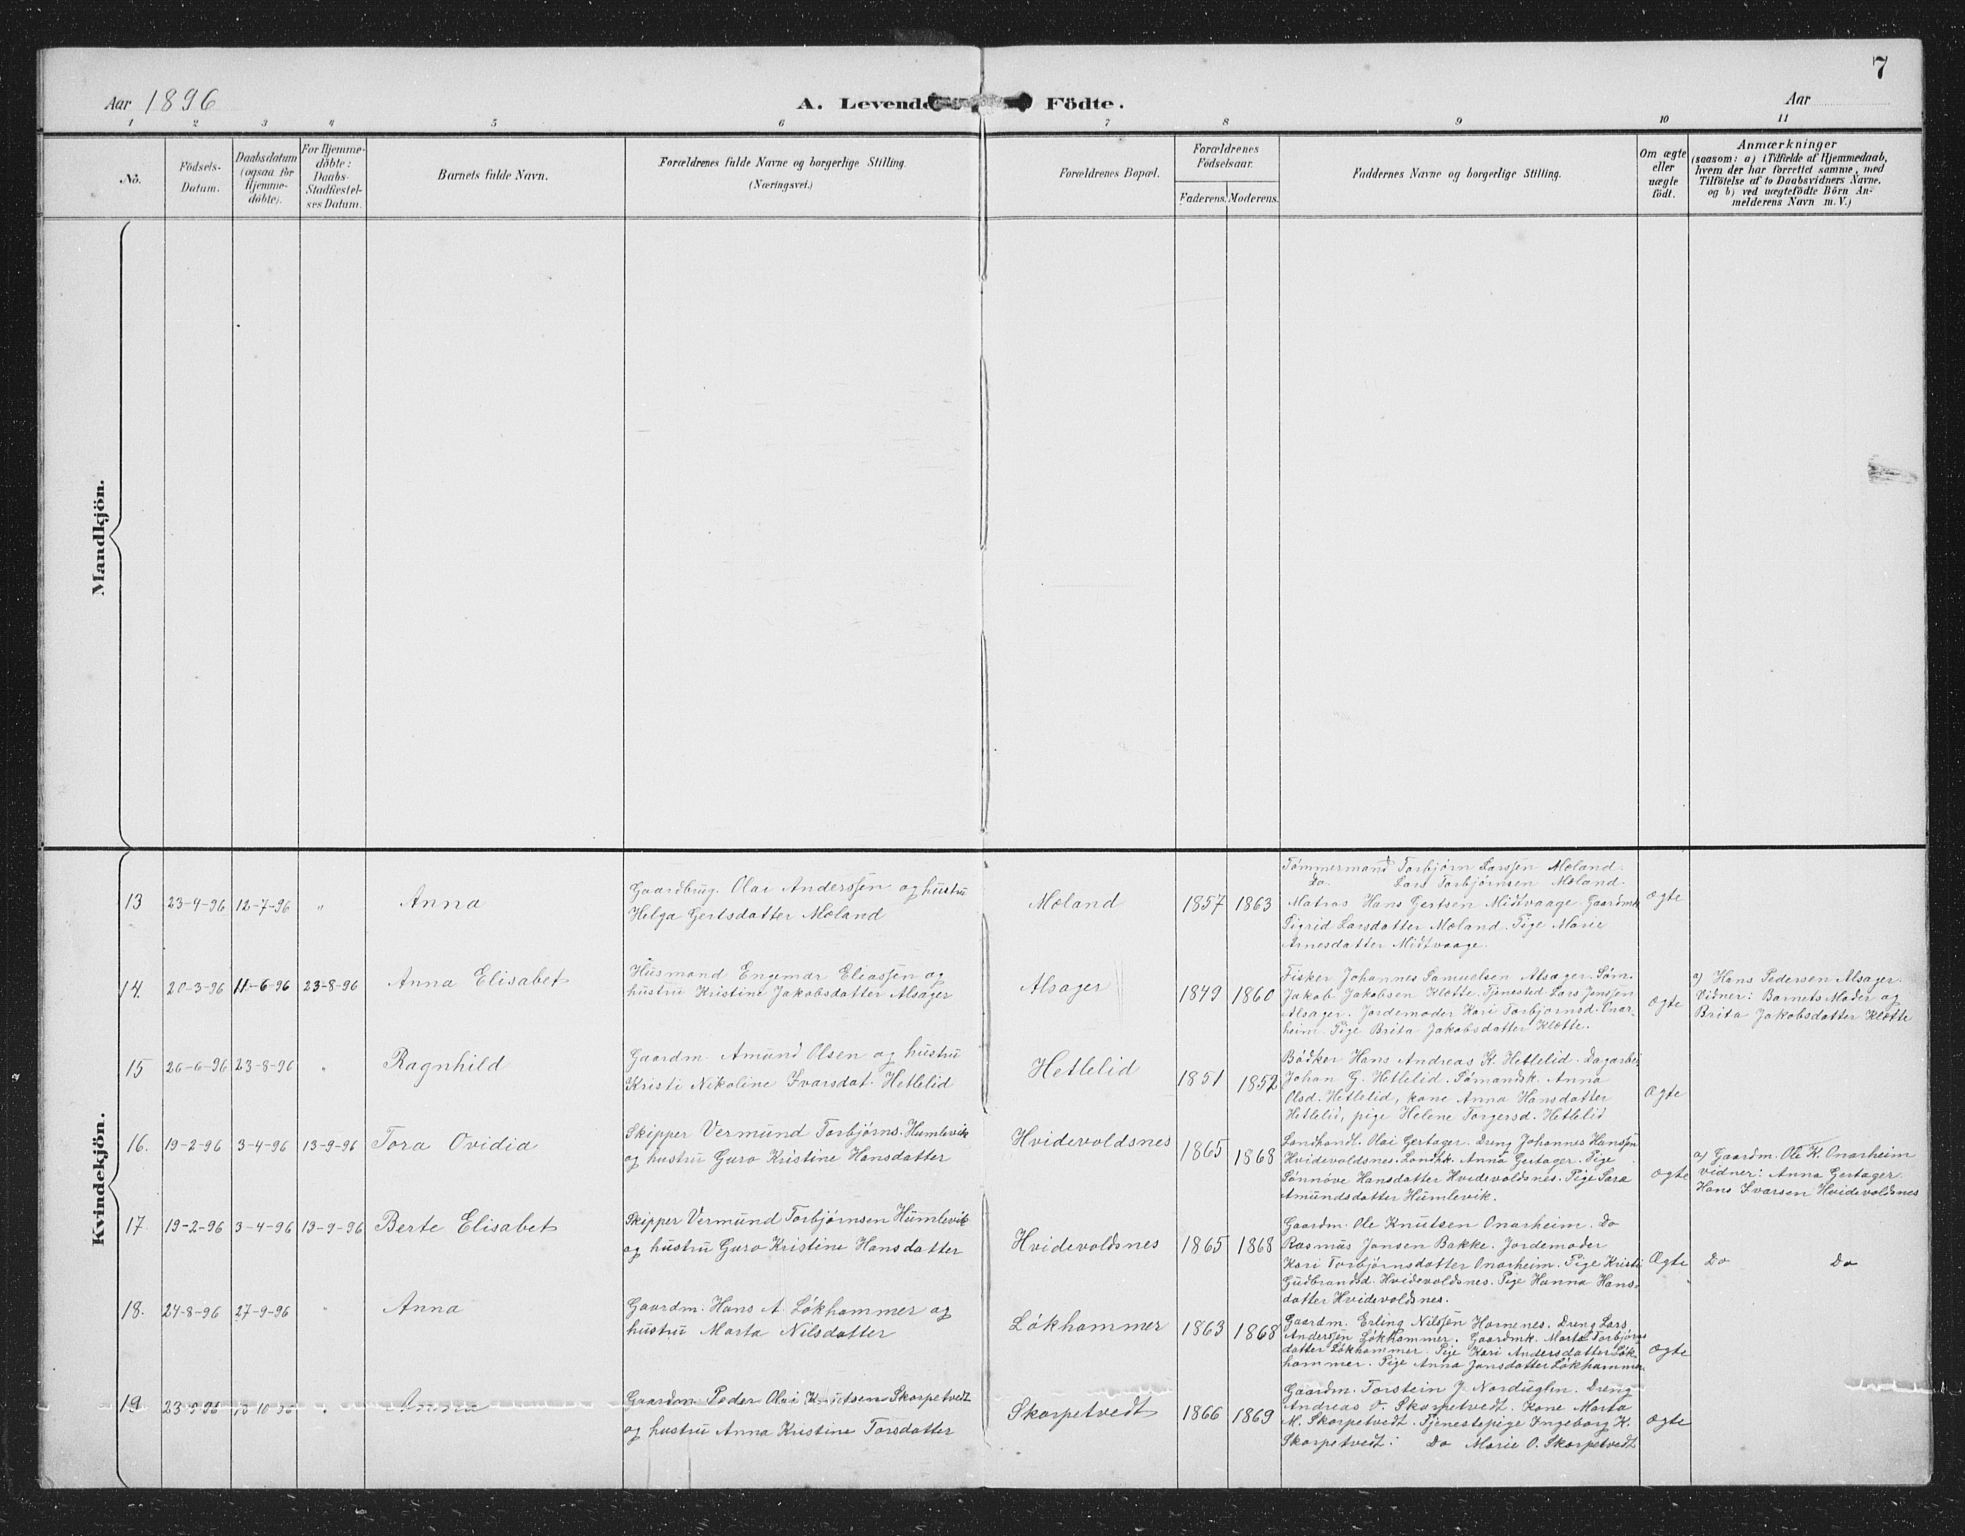 7
Aar 1896
A. Levende Födte.
Aar
1 2 3 4 5 6 7 8 9 10 11
No.
Födsels-
Datum.
Daabsdatum
(ogsaa for
Hjemme-
døbte).
For Hjemme-
døbte:
Daabs-
Stadfæstel-
ses Datum.
Barnets fulde Navn.
Forældrenes fulde Navne og borgerlige Stilling.
(Næringsvei.)
Forældrenes Bopæl.
Forældrenes
Födselsaar.
Faderens. Moderens.
Faddernes Navne og borgerlige Stilling.
Om ægte
eller
uægte
født.
Anmærkninger
(saasom: a) i Tilfælde af Hjemmedaab,
hvem der har forrettet samme, med
Tilföielse af to Daabsvidners Navne,
og b) ved uægtefödte Börn An-
melderens Navn m. V.)
Mandkjön.
Kvindekjön.
13 23-4-96 12-7-96 " Anna
Gaardbrug. Olai Anderssen og hustru
Helga Gertsdatter Mæland
Mæland 1857 1863
Tømmermand Torbjørn Larssen Mæland.
Do. Lars Torbjørnsen Mæland.
Matros Hans Gertsen Midtvaage Gaardmk
Sigrid Larsdatter Mæland. Pige Marie
Arnesdatter Midtvaage.
Ægte
14. 20-3-96 11-6-96 23-8-96 Anna Elisabet
Husmand Engemar Eliassen og
hustru Kristine Jakobsdatter Alsager
Alsager 1849 1860
Fisker Johannes Samuelsen Alsager. Søm.
Jakob Jakobsen Klette. Tjenested. Lars Jenssen
Alsager. Jordemoder Kari Torbjørnsd. Onar-
heim. Pige Brita Jakobsdatter Klette.
Ægte
a) Hans Pedersen Alsager.
Vidner: Barnets Moder og
Brita Jakobsdatter Klette
15 26-6-96 23-8-96 " Ragnhild
Gaardm. Amund Olsen og hustru
Kristi Nikoline Ivarsdat. Hetlelid
Hetlelid 1851 1852
Bødker Hans Andreas K. Hetlelid. Dagarbei.
Johan G. Hetlelid. Sømandsk. Anna
Olsd. Hetlelid, kone Anna Hansdatter
Hetlelid, pige Helene Torgersd. Hetlelid
Ægte
16. 19-2-96 3-4-96 13-9-96 Tora Ovidia
Skipper Vermund Torbjørns. Humlevik
og hustru Guro Kristine Hansdatter
Hvidevoldsnes 1865 1868
Landhandl. Olai Gertager. Dreng Johannes Hanssen
Hvidevoldsnes. Landhk. Anna Gertager. Pige
Sønnøve Hansdatter Hvidevoldsnes. Pige Sara
Amundsdatter Humlevik.
Ægte
a) Gaardm. Ole K. Onarheim
vidner: Anna Gertager.
Hans Ivarsen Hvidevoldsnes
17. 19-2-96 3-4-96 13-9-96 Berte Elisabet
Skipper Vermund Torbjørnsen Humlevik
og hustru Guro Kristine Hansdatter
Hvidevoldsnes 1865 1868
Gaardm. Ole Knutsen Onarheim. Do
Rasmus Jansen Bakke. Jordemoder
Kari Torbjørnsdatter Onarheim. Pige Kristi
Gudbrandsd. Hvidevoldsnes. Pige Hanna Hans-
datter Hvidevoldsnes.
Ægte Do Do
18. 24-8-96 27-9-96 " Anna
Gaardm. Hans A. Løkhammer og
hustru Marta Nilsdatter
Løkhammer 1863 1868
Gaardm. Erling Nilssen Hornenes. Dreng Lars
Anderssen Løkhammer. Gaardmk. Marta Torbjørns
datter Løkhammer. Pige Kari Andersdatter Løk-
hammer. Pige Anna Jansdatter Løkhammer
Ægte
19 23-9-96 10-96 " Anna
Gaardm. Peder Olai Knutsen Skorpetvedt
og hustru Anna Kristine Torsdatter
Skorpetvedt 1866 1869
Gaardm. Torstein J. Nordhuglen. Dreng
Andreas O. Skorpetvedt. Kone Marta
M. Skorpetvedt. Tjenestepige Ingeborg K.
Skorpetvedt. Do Marie O. Skorpetvedt
Ægte